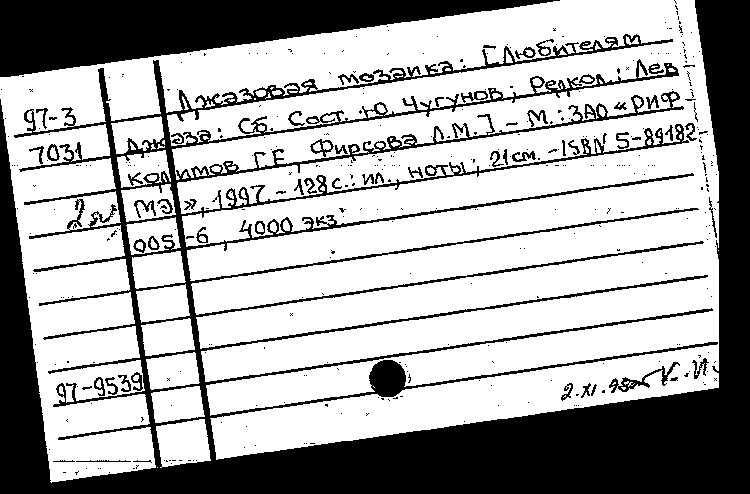 97-3
7031
Джазовая мозаика: [Любителям
джаза: Сб. Сост. Ю. Чугунов; Редкол.: Лев
Г.Е., Фирсова Л.М.] - М.: ЗАО «РИФ
МЭ», 1997. - 128 с.: ил., ноты; 21 см. - ISBN 5-89182-
005-6, 4000 экз.
97-9539